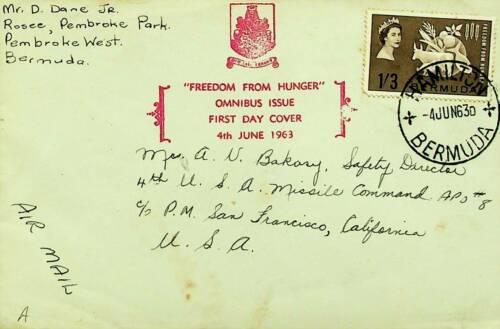 Mr. D. Dane Jr.
Rosee, Pembroke Park.
Pembroke West.
Bermuda.
"FREEDOM FROM HUNGER"
OMNIBUS ISSUE
FIRST DAY COVER
4th JUNE 1963
FREEDOM FROM HUNGER
1/3
BERMUDA
HAMILTON
-4JUN63
BERMUDA
Mrs. A. V. Bakary, Safety Director
4th U. S. A. Missile Command APO #8
c/o P.M. San Francisco, California
U. S. A.
AIR MAIL
A